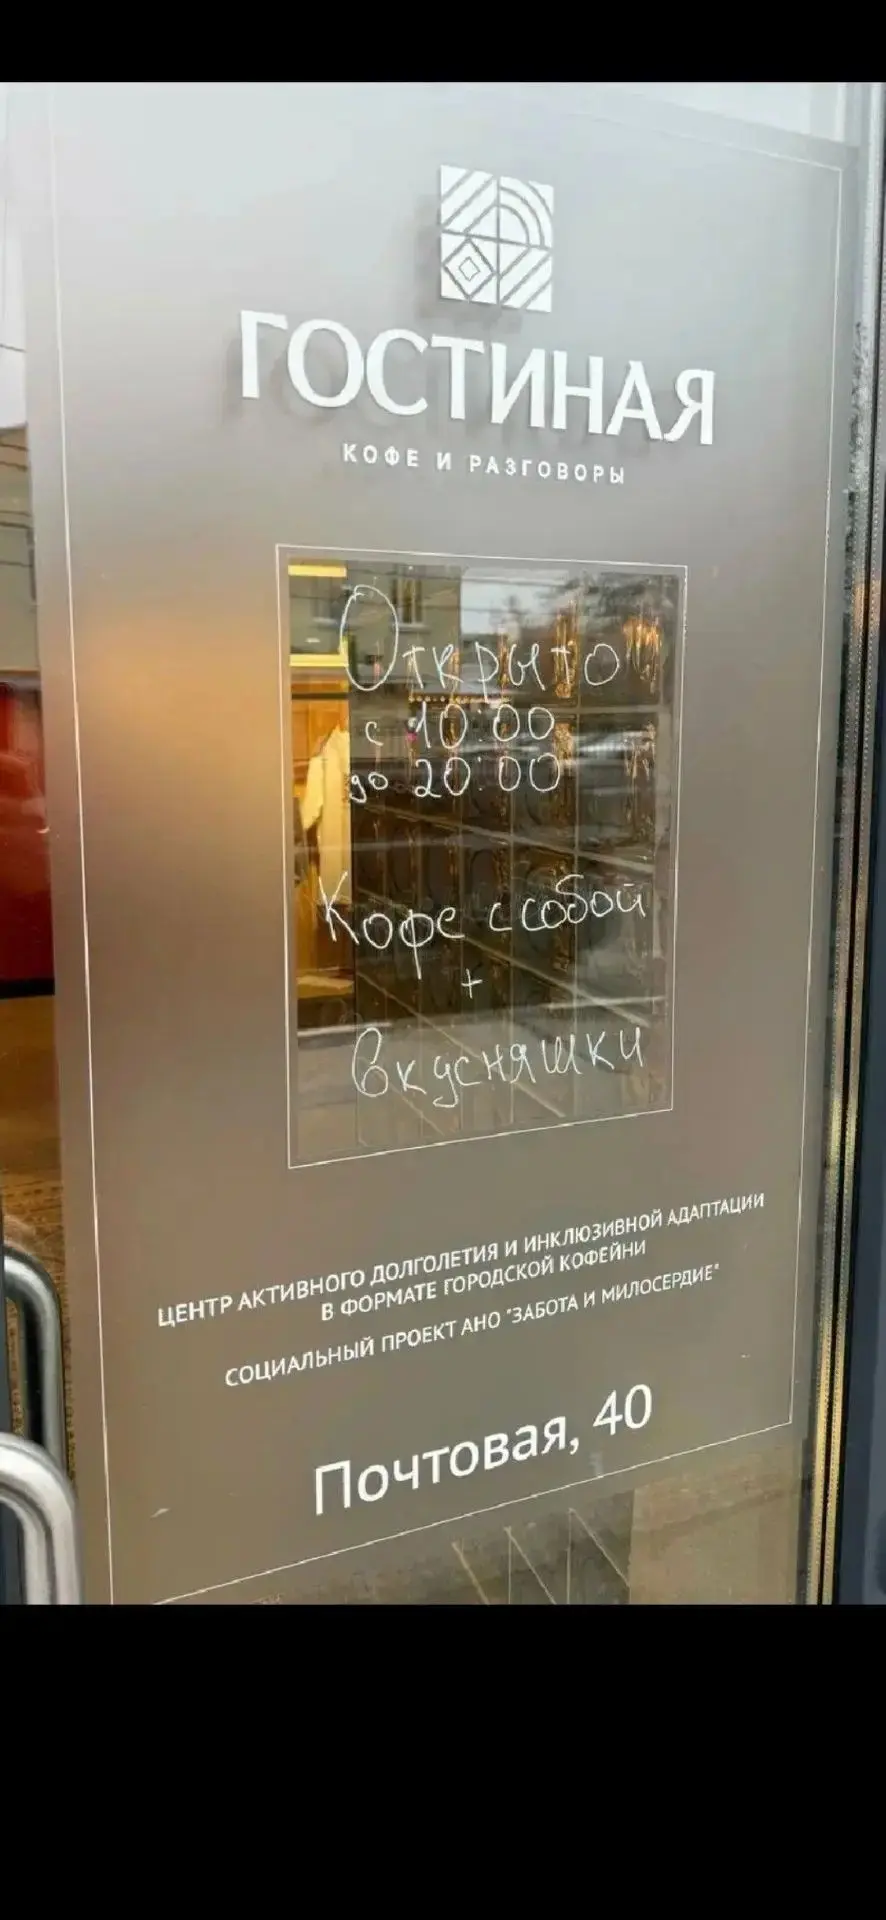 ГОСТИНАЯ
КОФЕ И РАЗГОВОРЫ
Открыто
с 10:00
до 20:00
Кофе с собой
+
Вкусняшки
ЦЕНТР АКТИВНОГО ДОЛГОЛЕТИЯ И ИНКЛЮЗИВНОЙ АДАПТАЦИИ
В ФОРМАТЕ ГОРОДСКОЙ КОФЕЙНИ
СОЦИАЛЬНЫЙ ПРОЕКТ АНО "ЗАБОТА И МИЛОСЕРДИЕ"
Почтовая, 40